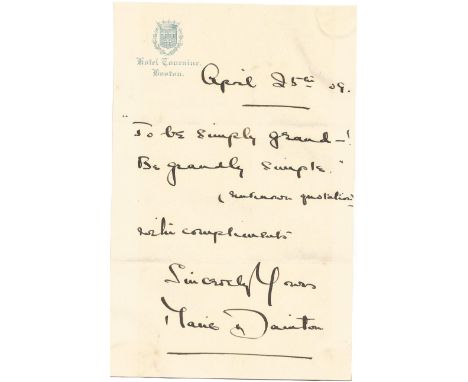 Hotel Touraine.
Boston.
April 25th 09.
"To be simply grand—!
Be grandly simple."
(unknown quotation)
with compliments
Sincerely Yours
Marie Dainton